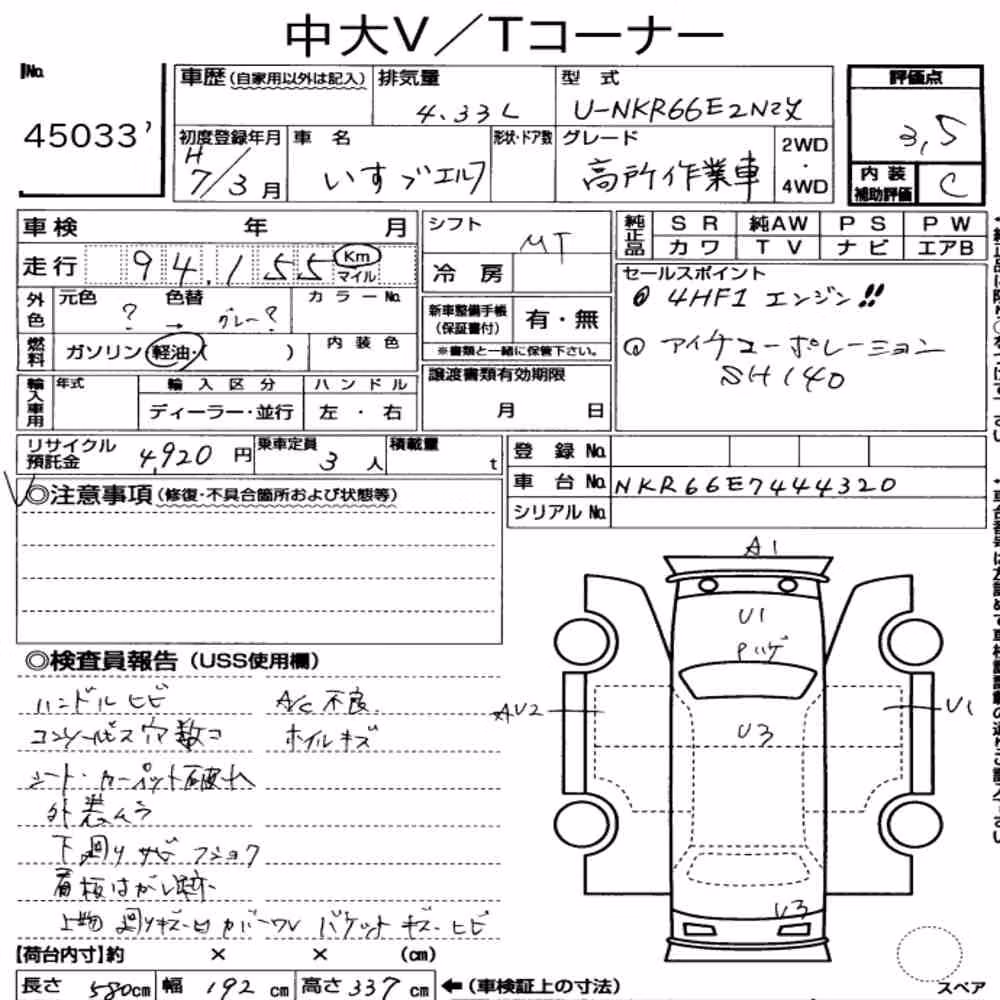 中大V／Tコーナー
No.
45033'
車歴（自家用以外は記入）
排気量
4.33L
型 式
U-NKR66E2N改
評価点
3,5
初度登録年月
H
7/3月
車 名
いすゞエルフ
形状・ドア数
グレード
高所作業車
2WD
・
4WD
内装
補助評価
C
車検 年 月
走行 94,155 Km
マイル
シフト
MT
冷 房
純正品
SR 純AW PS PW
カワ TV ナビ エアB
セールスポイント
◎ 4HF1 エンジン!!
◎ アイチコーポレーション
SH140
外色
元色 色替
? → グレー?
カラーNo.
燃料
ガソリン・軽油・( )
内装色
新車整備手帳
（保証書付）
有・無
※書類と一緒に保管下さい。
輸入車用
年式
輸入区分
ディーラー・並行
ハンドル
左・右
譲渡書類有効期限
月 日
リサイクル
預託金
4,920 円
乗車定員
3 人
積載量
t
登 録 No.
車 台 No. NKR66E7444320
シリアルNo.
◎注意事項（修復・不具合箇所および状態等）
◎検査員報告（USS使用欄）
ハンドルヒビ A/C不良
コンソールビス穴数コ ホイルキズ
シート・カーペット破れ
外装ムラ
下廻りサビフショク
看板はがし跡
上物廻りキズ・凹 カバーワレ バケットキズ・ヒビ
A1
U1
Pハゲ
AU2
U3
U1
U3
【荷台内寸】約 × × (cm)
長さ 580cm 幅 192cm 高さ 337cm
←（車検証上の寸法）
スペア